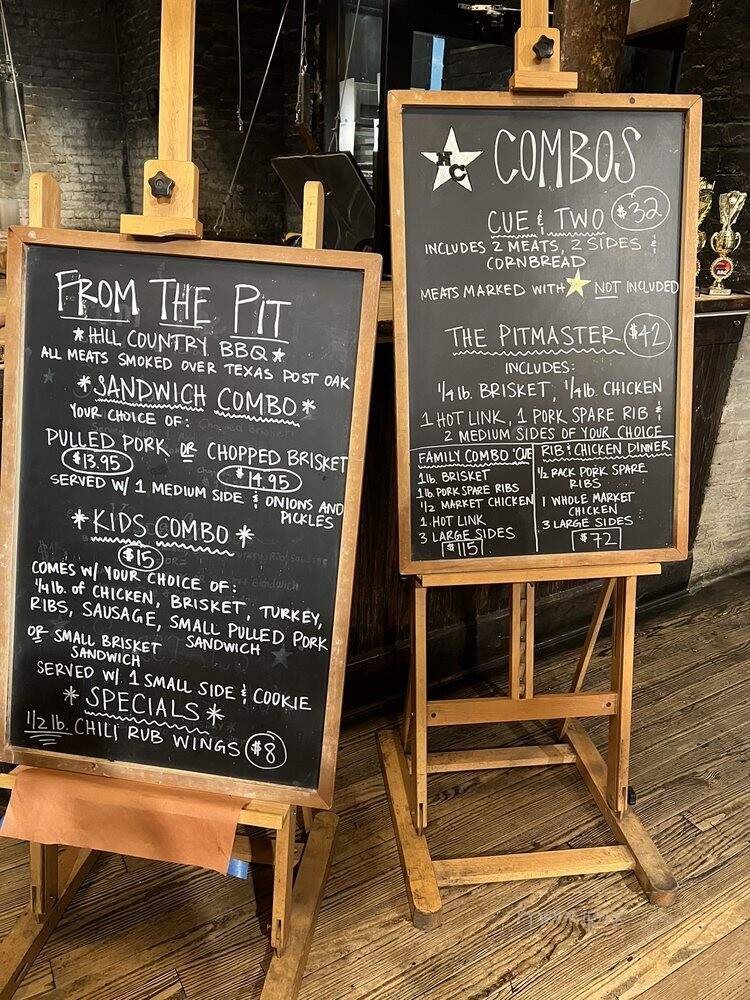 FROM THE PIT
*HILL COUNTRY BBQ*
ALL MEATS SMOKED OVER TEXAS POST OAK
*SANDWICH COMBO*
YOUR CHOICE OF:
PULLED PORK OR CHOPPED BRISKET
$13.95 $14.95
SERVED W/ 1 MEDIUM SIDE & ONIONS AND
PICKLES
*KIDS COMBO*
$15
COMES W/ YOUR CHOICE OF:
1/4 lb. of CHICKEN, BRISKET, TURKEY,
RIBS, SAUSAGE, SMALL PULLED PORK
SANDWICH
OR SMALL BRISKET
SANDWICH
SERVED W/ 1 SMALL SIDE & COOKIE
*SPECIALS*
1/2 lb. CHILI RUB WINGS $8
HC COMBOS
CUE & TWO $32
INCLUDES 2 MEATS, 2 SIDES &
CORNBREAD
MEATS MARKED WITH ★ NOT INCLUDED
THE PITMASTER $42
INCLUDES:
1/4 lb. BRISKET, 1/4 lb. CHICKEN
1 HOT LINK, 1 PORK SPARE RIB &
2 MEDIUM SIDES OF YOUR CHOICE
FAMILY COMBO 'CUE
1 lb. BRISKET
1 lb. PORK SPARE RIBS
1/2 MARKET CHICKEN
1 HOT LINK
3 LARGE SIDES
$115
RIB & CHICKEN DINNER
1/2 RACK PORK SPARE
RIBS
1 WHOLE MARKET
CHICKEN
3 LARGE SIDES
$72